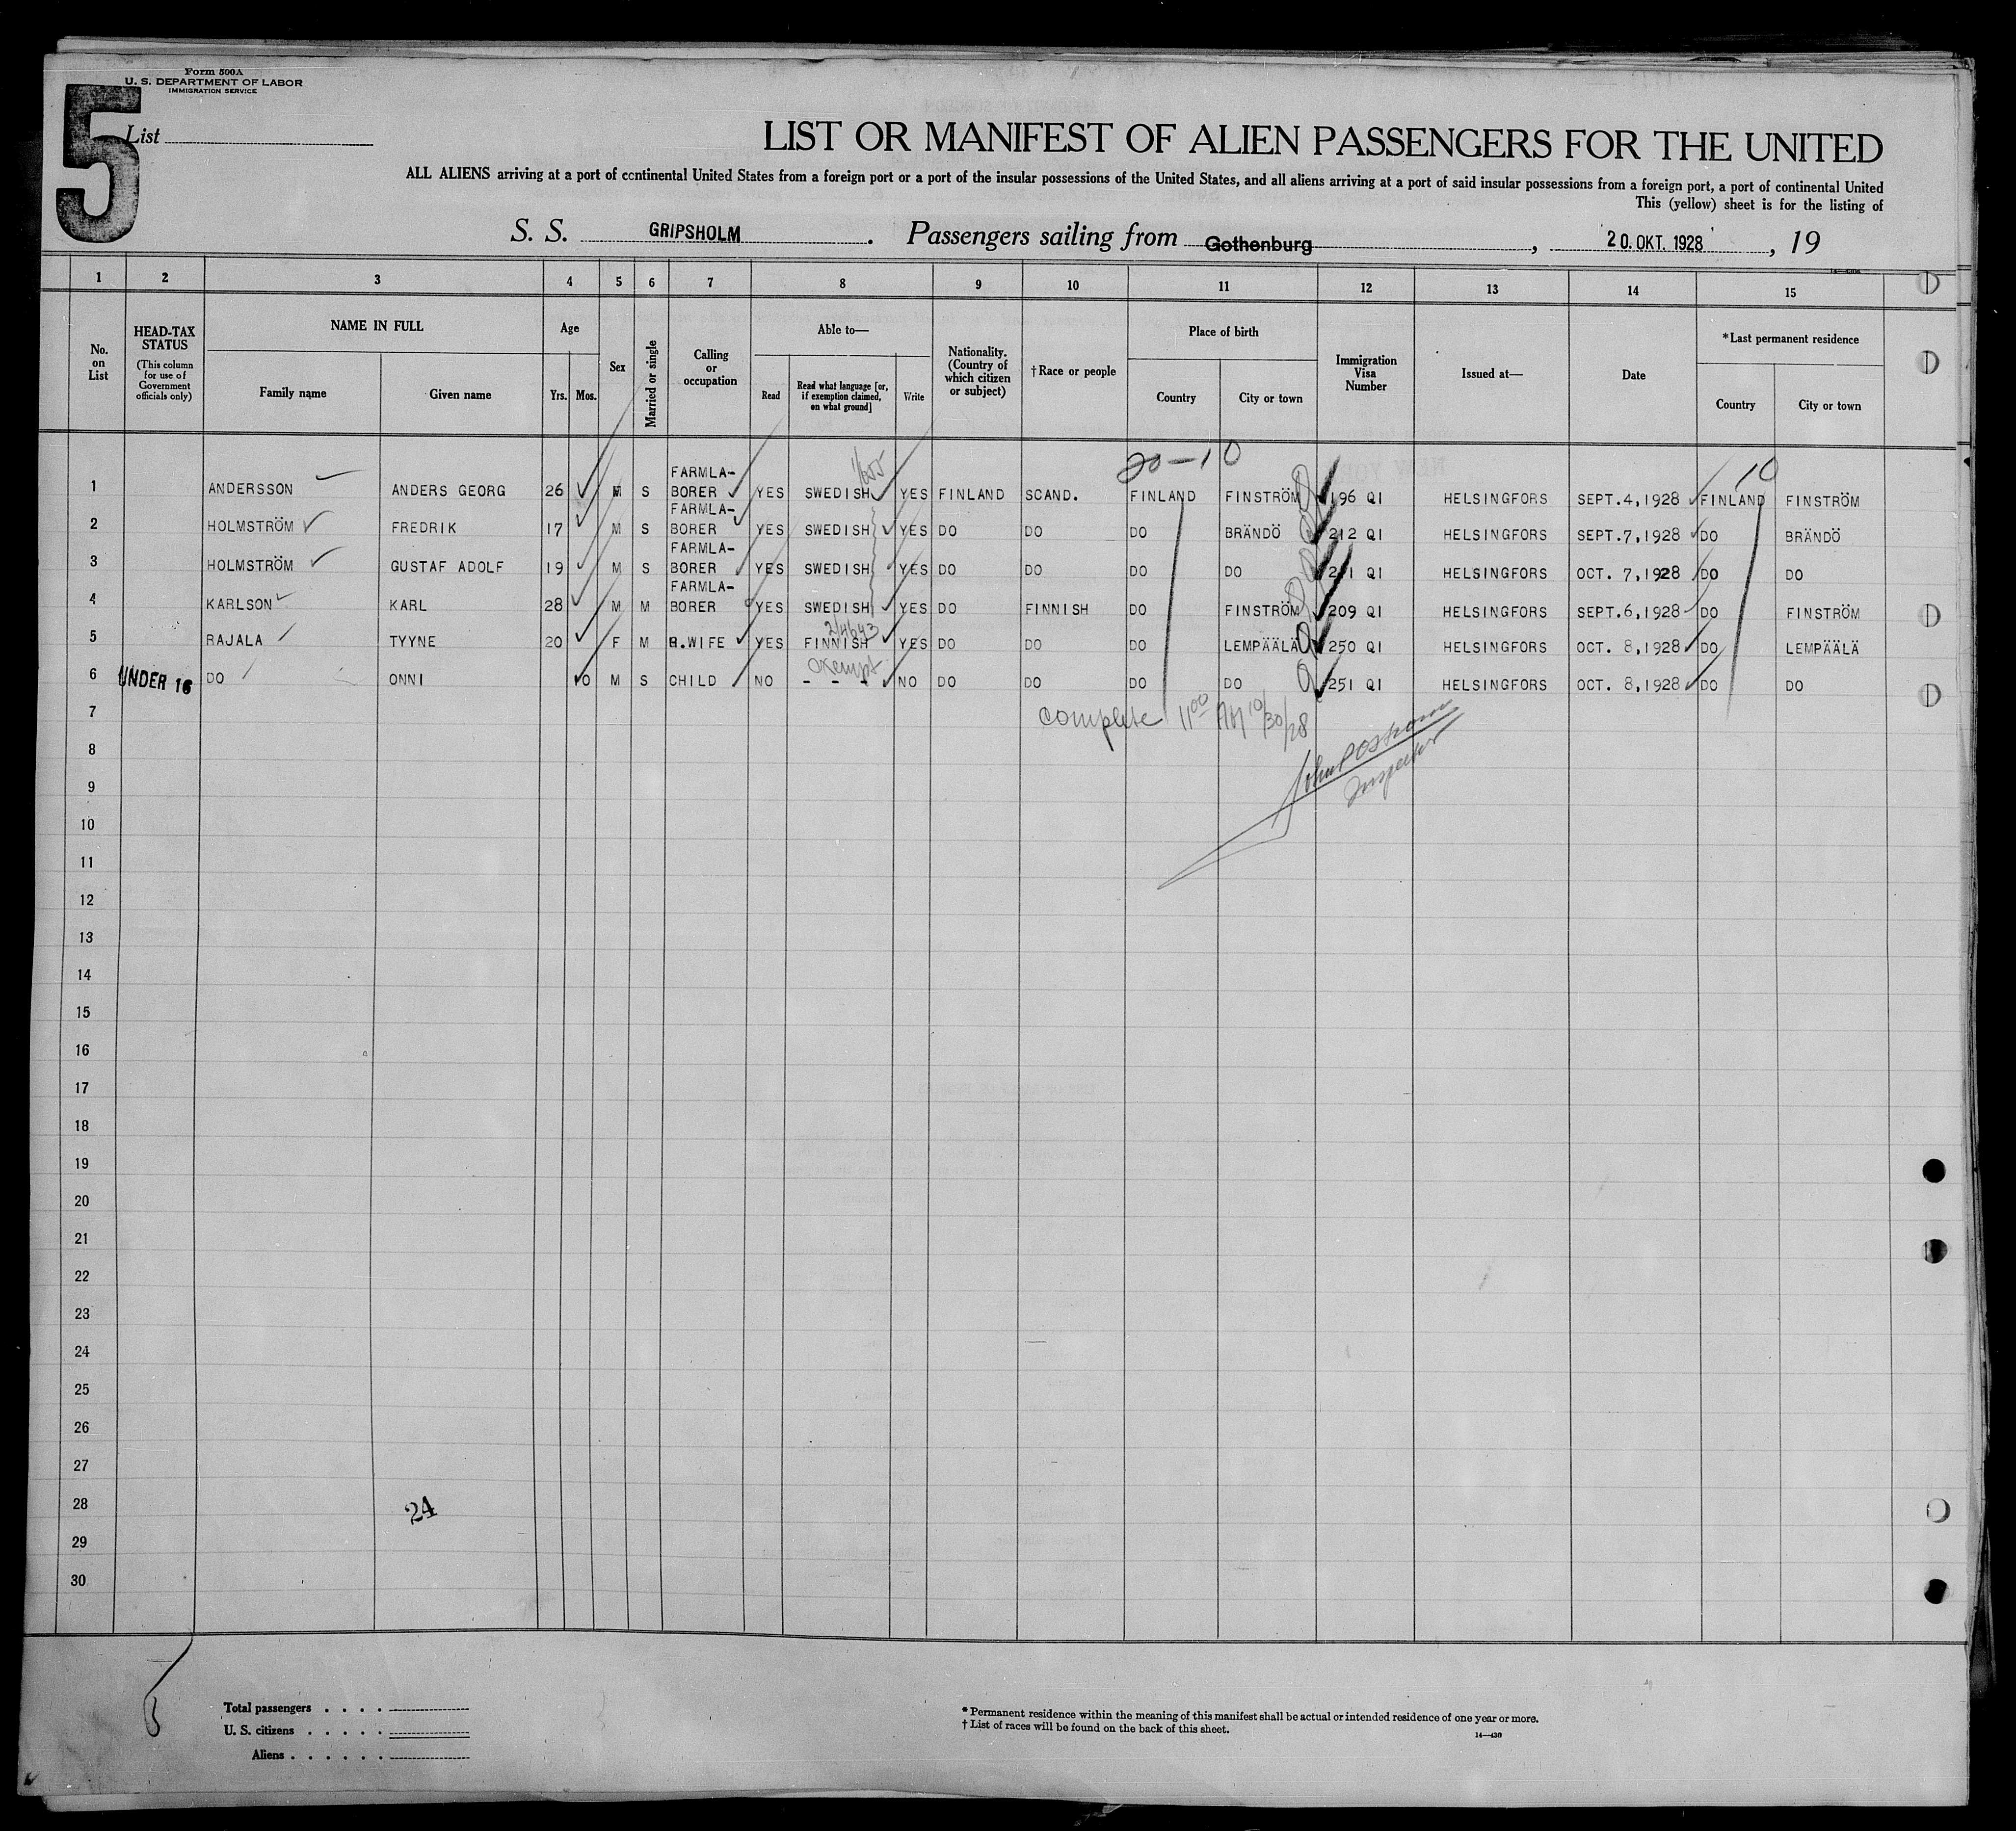 Form 500A
U. S. DEPARTMENT OF LABOR
IMMIGRATION SERVICE
5
List
LIST OR MANIFEST OF ALIEN PASSENGERS FOR THE UNITED
ALL ALIENS arriving at a port of continental United States from a foreign port or a port of the insular possessions of the United States, and all aliens arriving at a port of said insular possessions from a foreign port, a port of continental United
This (yellow) sheet is for the listing of
S. S. GRIPSHOLM. Passengers sailing from Gothenburg, 20. OKT. 1928, 19
1 2 3 4 5 6 7 8 9 10 11 12 13 14 15
No. on List
HEAD-TAX STATUS
(This column for use of Government officials only)
NAME IN FULL
Family name
Given name
Age
Yrs. Mos.
Sex
Married or single
Calling or occupation
Able to—
Read
Read what language [or, if exemption claimed, on what ground]
Write
Nationality. (Country of which citizen or subject)
†Race or people
Place of birth
Country
City or town
Immigration Visa Number
Issued at—
Date
*Last permanent residence
Country
City or town
20-10
10
1 ANDERSSON ANDERS GEORG 26 M S FARMLA-BORER YES SWEDISH YES FINLAND SCAND. FINLAND FINSTRÖM 196 QI HELSINGFORS SEPT.4,1928 FINLAND FINSTRÖM
2 HOLMSTRÖM FREDRIK 17 M S FARMLA-BORER YES SWEDISH YES DO DO DO BRÄNDÖ 212 QI HELSINGFORS SEPT.7,1928 DO BRÄNDÖ
3 HOLMSTRÖM GUSTAF ADOLF 19 M S FARMLA-BORER YES SWEDISH YES DO DO DO DO 211 QI HELSINGFORS OCT. 7,1928 DO DO
4 KARLSON KARL 28 M M FARMLA-BORER YES SWEDISH YES DO FINNISH DO FINSTRÖM 209 QI HELSINGFORS SEPT.6,1928 DO FINSTRÖM
2/4643
5 RAJALA TYYNE 20 F M H.WIFE YES FINNISH YES DO DO DO LEMPÄÄLÄ 250 QI HELSINGFORS OCT. 8,1928 DO LEMPÄÄLÄ
exempt
6 UNDER 16 DO ONNI 10 M S CHILD NO - - - NO DO DO DO DO 251 QI HELSINGFORS OCT. 8,1928 DO DO
7
complete 11 00 AM 10/30/28
8
Inspector
9
10
11
12
13
14
15
16
17
18
19
20
21
22
23
24
25
26
27
28
24
29
30
Total passengers . . . .
U. S. citizens . . . . .
Aliens . . . . . .
* Permanent residence within the meaning of this manifest shall be actual or intended residence of one year or more.
† List of races will be found on the back of this sheet.
14—430